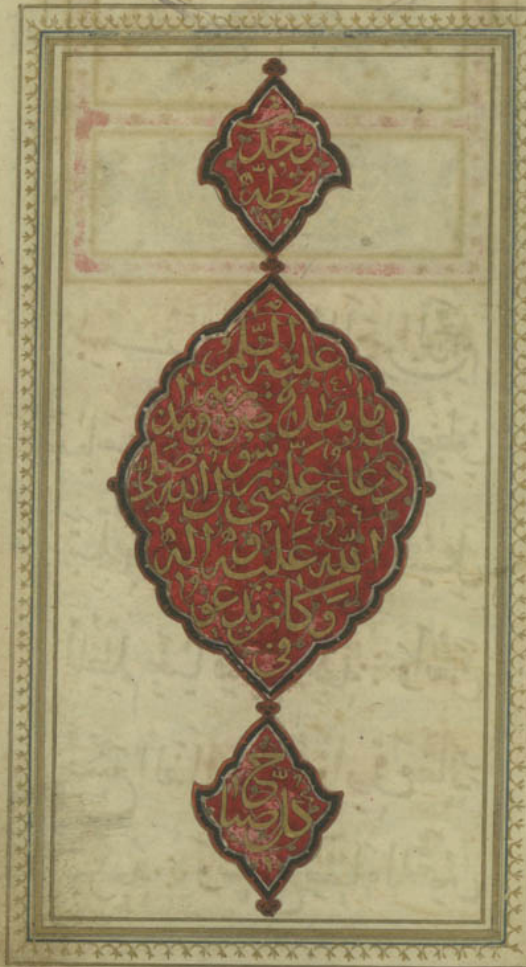 وجد
بخطه
عليه السلم
ما هذه صورته
دعاء علمني رسول الله صلى
الله عليه وآله
وكان يدعو
في
كل صباح